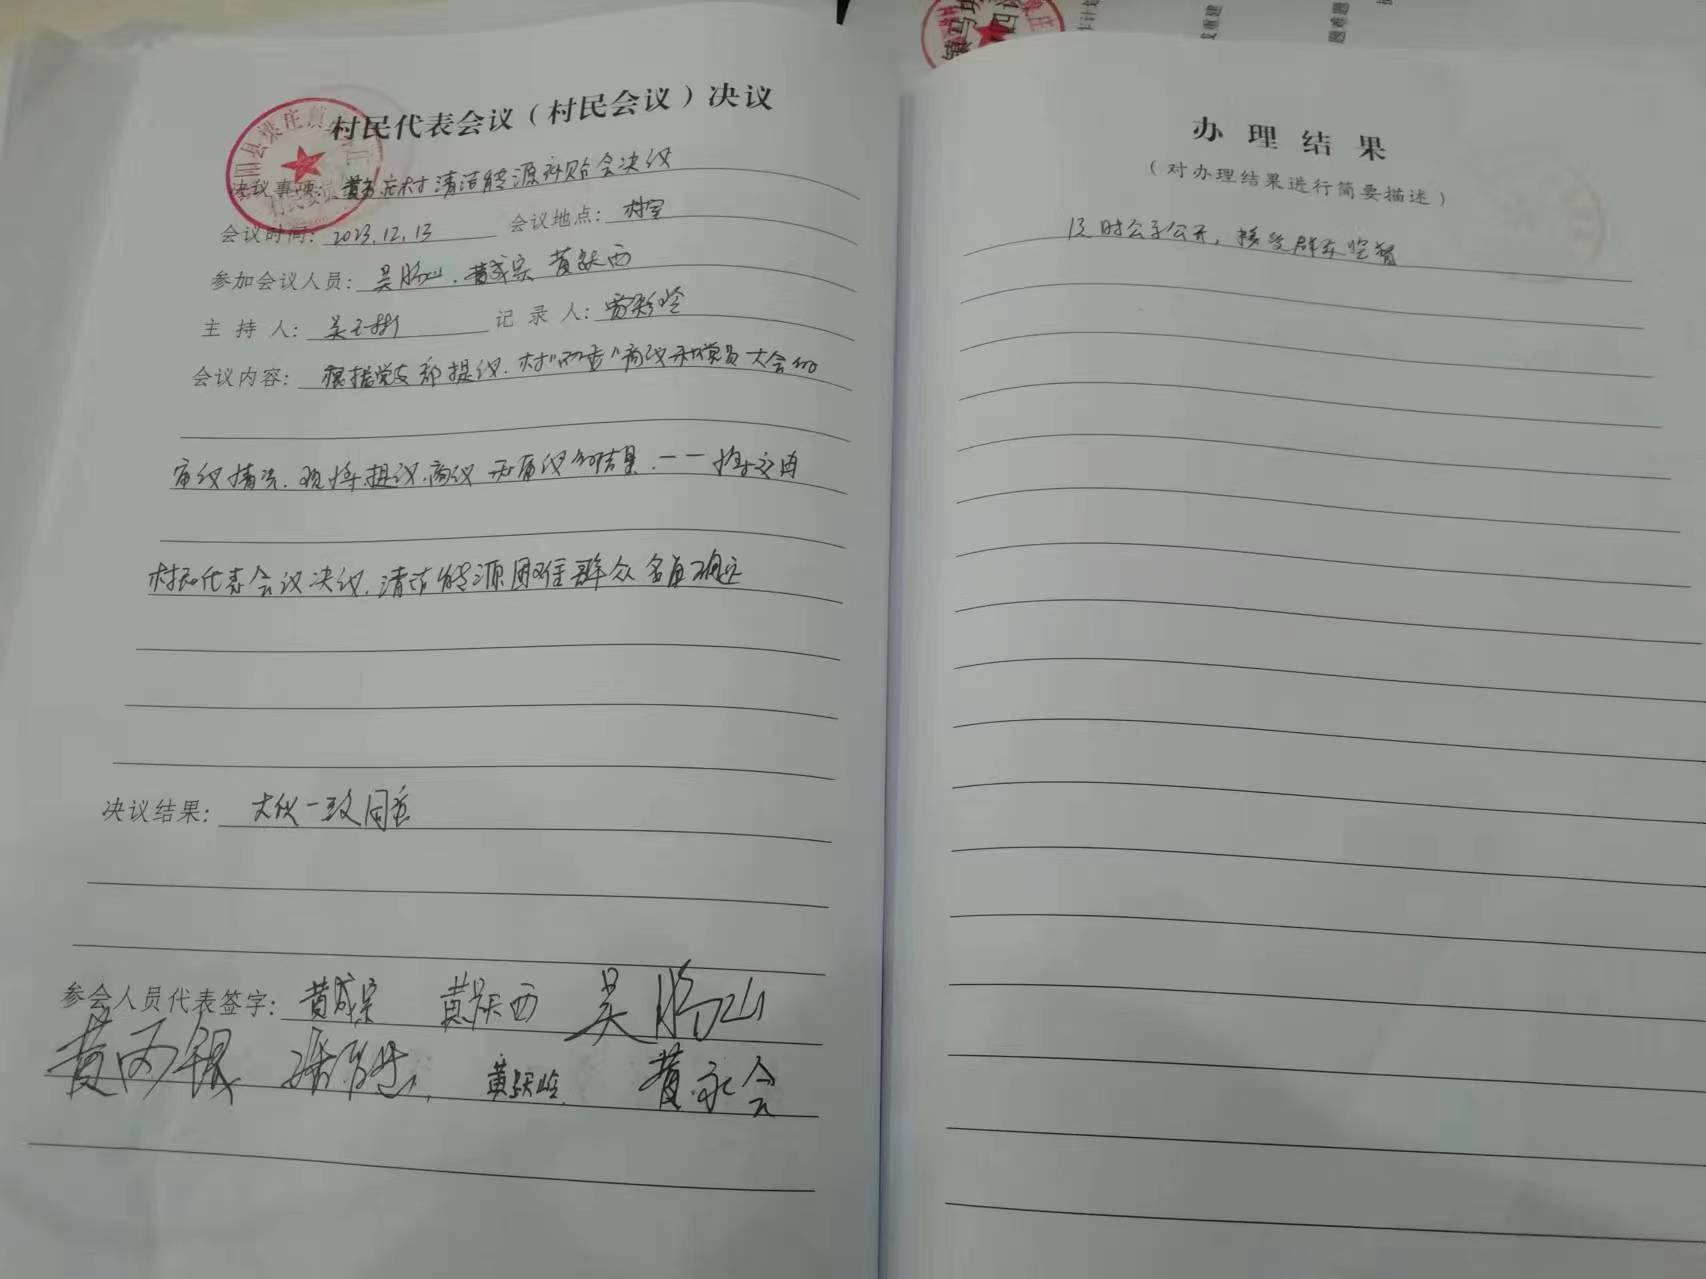 村民代表会议（村民会议）决议
决议事项：黄 庄村清洁能源补贴会决议
会议时间：2023.12.13 会议地点：村室
参加会议人员：吴 山、黄成宗 黄跃西
主持人：吴 记录人：
会议内容：根据党支部提议、村“两委”商议和党员大会的
审议情况，现将提议、商议和审议的结果，一一 交由
村民代表会议决议，清洁能源困难群众名单确定
决议结果：大伙一致同意
参会人员代表签字：黄成宗 黄跃西 吴 山
黄丙银 黄跃岭 黄永会
办理结果
（对办理结果进行简要描述）
及时公示公开，接受群众监督